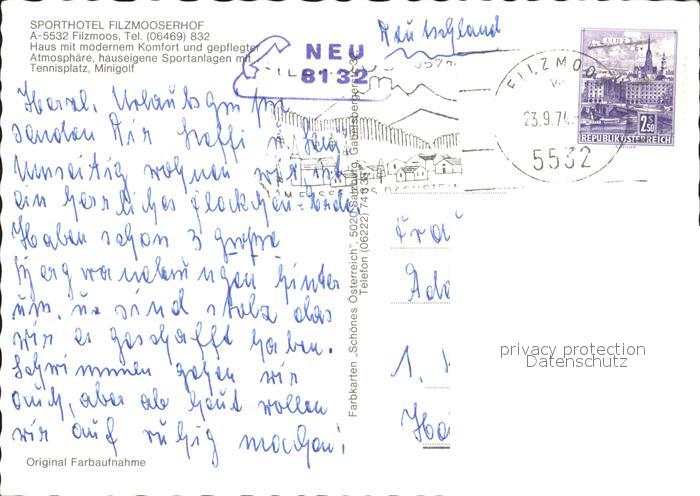 SPORTHOTEL FILZMOOSERHOF
A-5532 Filzmoos, Tel. (06469) 832
Haus mit modernem Komfort und gepflegter
Atmosphäre, hauseigene Sportanlagen mit
Tennisplatz, Minigolf
NEU
8132
Deutschland
FILZMOOS
23.9.74
5532
LINZ
2.50
REPUBLIK ÖSTERREICH
Herzl. Urlaubsgrüße
senden Dir Steffi u.
Umseitig wohnen wir, ist
ein herrliches Fleckchen Erde.
Haben schon 3 große
Bergwanderungen hinter
uns, u. sind stolz das
wir es geschafft haben.
Schwimmen gehen wir
auch, aber ab heut wollen
wir auf ruhig machen!
Original Farbaufnahme
Farbkarten „Schönes Österreich", 5020 Salzburg, Gabelsbergerstr.
Telefon (06222) 74
DACHSTEIN
Frau
1.
privacy protection
Datenschutz